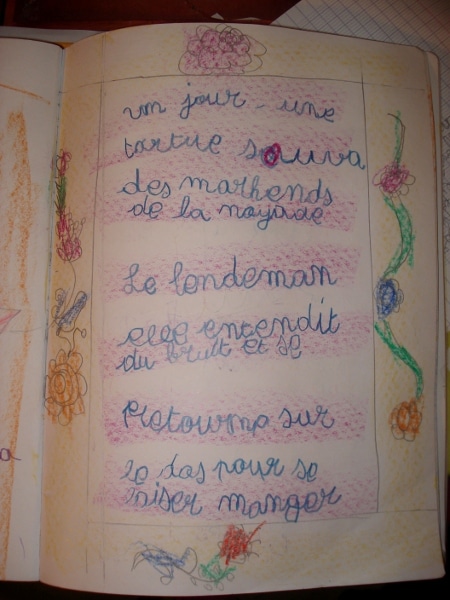 un jour une
tortue sauva
des markends
de la noyade
Le lendeman
elle entendit
du bruit et se
retourna sur
le dos pour se
laiser manger